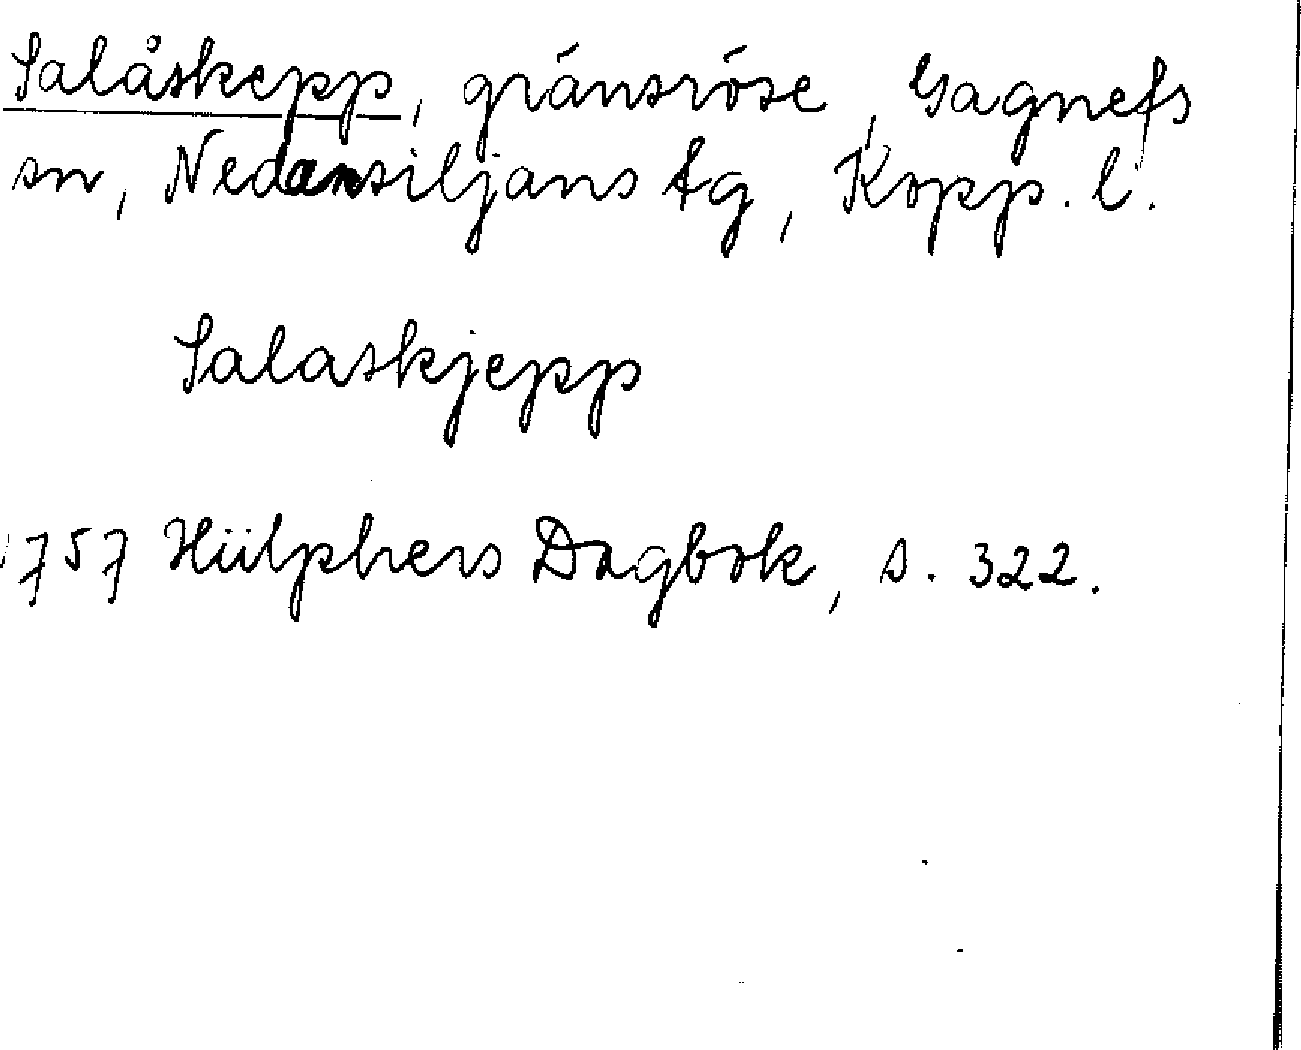 Salåskepp, gränsröse, Gagnefs
sn, Nedansiljans tg, Kopp. l.
Salaskjepp
1757 Hülphers Dagbok, s. 322.